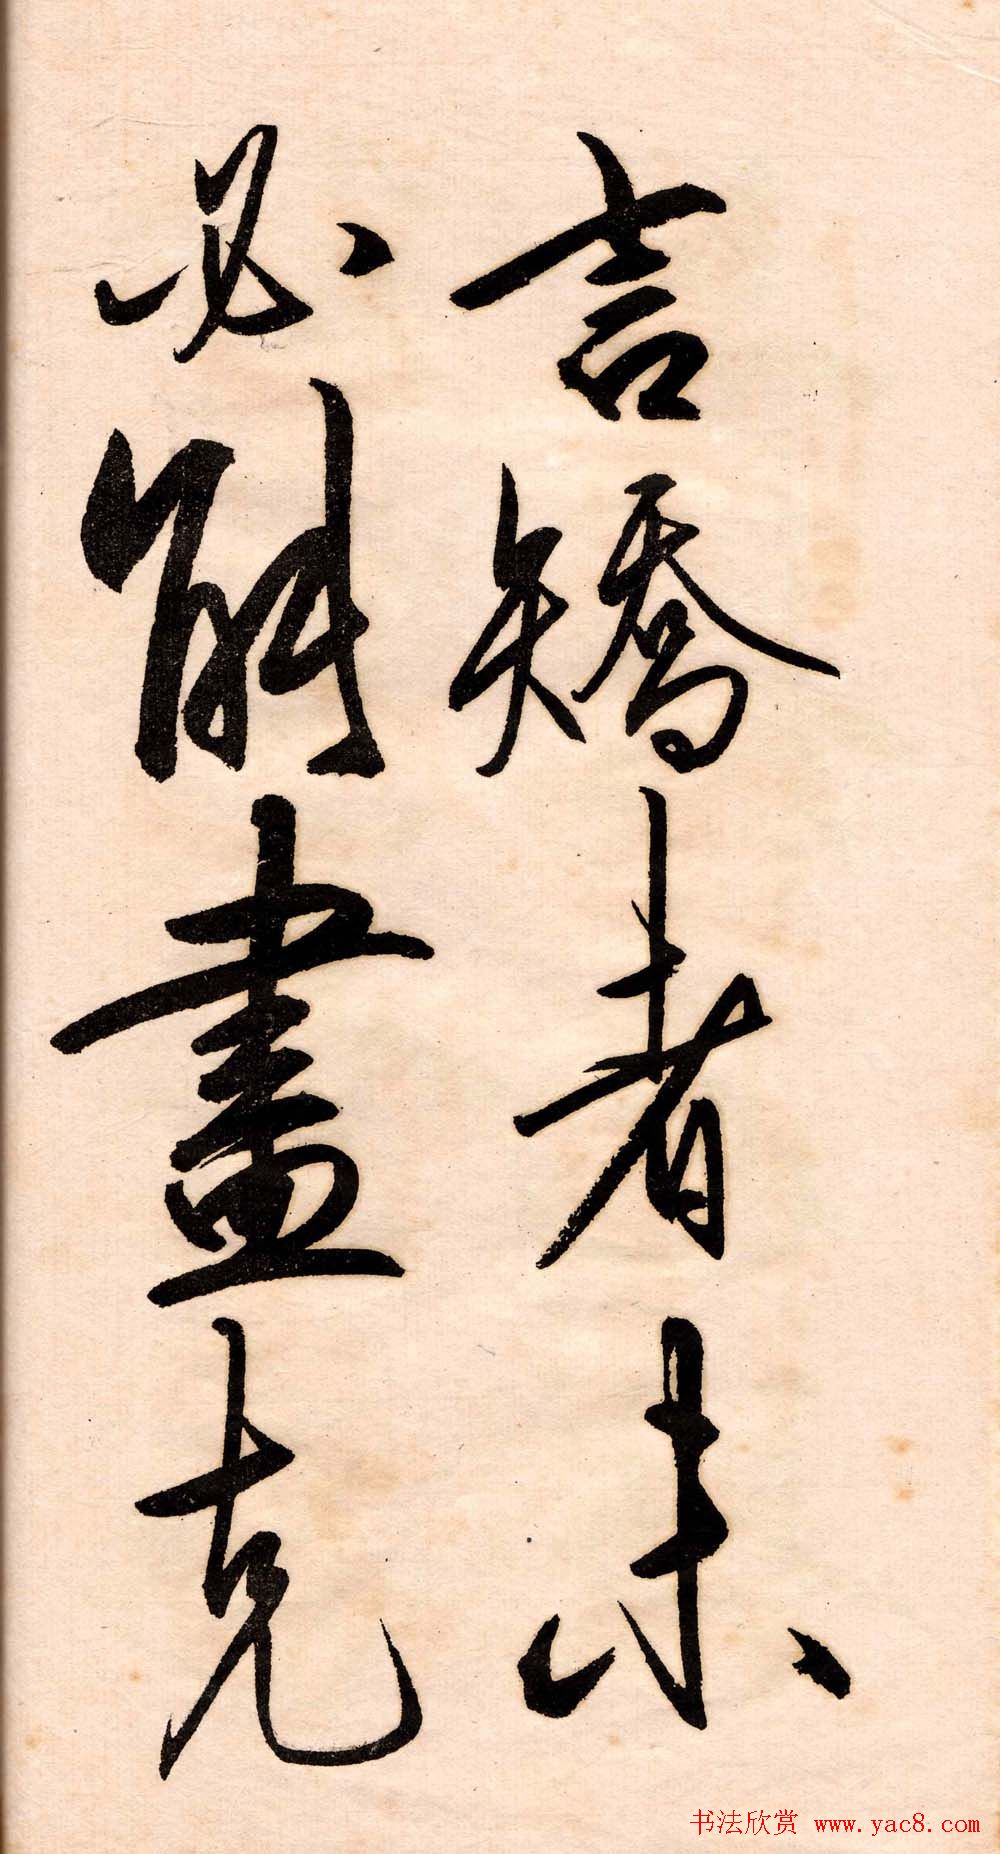 言矯者未
必能盡克
书法欣赏 www.yac8.com